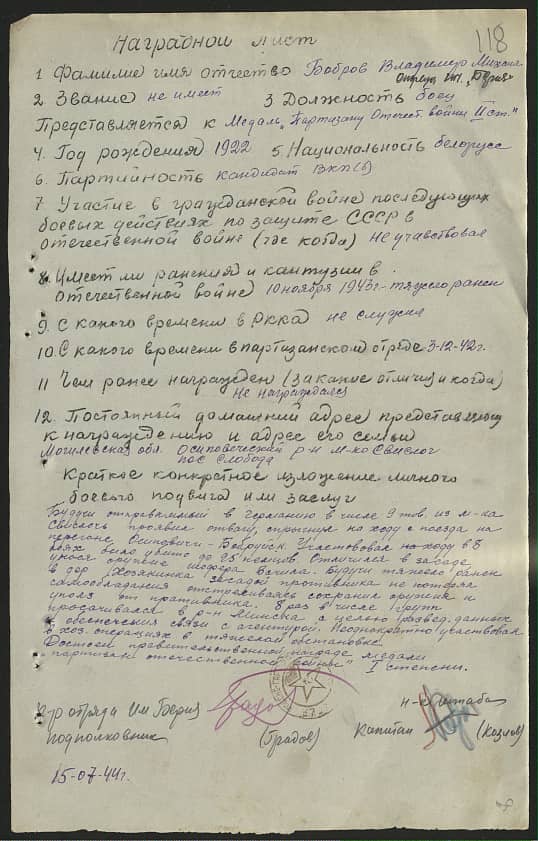 118
Наградной лист
1 Фамилие имя отчество Бобров Владимир Михаил.
Отряд им. "Берия"
2 Звание не имеет 3. Должность боец
Представляется к Медаль "Партизану Отечест. войны II ст."
4. Год рождения 1922 5. Национальность белорусс
6. Партийность кандидат ВКП(б)
7 Участие в гражданской войне последующих
боевых действиях по защите СССР в
отечественной войне (где когда) не учавствовал
8. Имеет ли ранения и кантузии в
Отечественной войне 10 ноября 1943 г - тяжело ранен
9. С какого времени в РККА не служил
10. С какого времени в партизанском отряде 3-12-42г.
11 Чем ранее награжден (за какие отличия и когда)
Не награждался
12. Постоянный домашний адрес представляемого
к награждению и адрес его семьи
Могилевская обл. Осиповический р-н м-ко Свислоч
пос Слобода
Краткое конкретное изложение личного
боевого подвига или заслуг
Будучи отправляемый в Германию в числе 9 тов. из м-ка
Свислочь проявил отвагу, спрыгнул на ходу с поезда на
перегоне Осиповичи - Бобруйск. Участвовал в 8
боях было убито до 25 немцев. Отличился в засаде
оружие шофера Вагила. Будучи тяжело ранен
в дер Хозянинка засадой противника не потерял
самообладания отстреливаясь сохранил оружия и
уполз от противника. 8 раз в числе групп
просачивался в р-н Минска с целью развед. данных
и обеспечения связи с агентурой. Неоднократно участвовал
в хоз. операциях в тяжелой обстановке.
Достоен правительственной награде медали
"партизан отечественной войны" I степени.
к-р отряда им Берия
подполковник (Градов)
н-к штаба
капитан (Козлов)
15-07-44г.